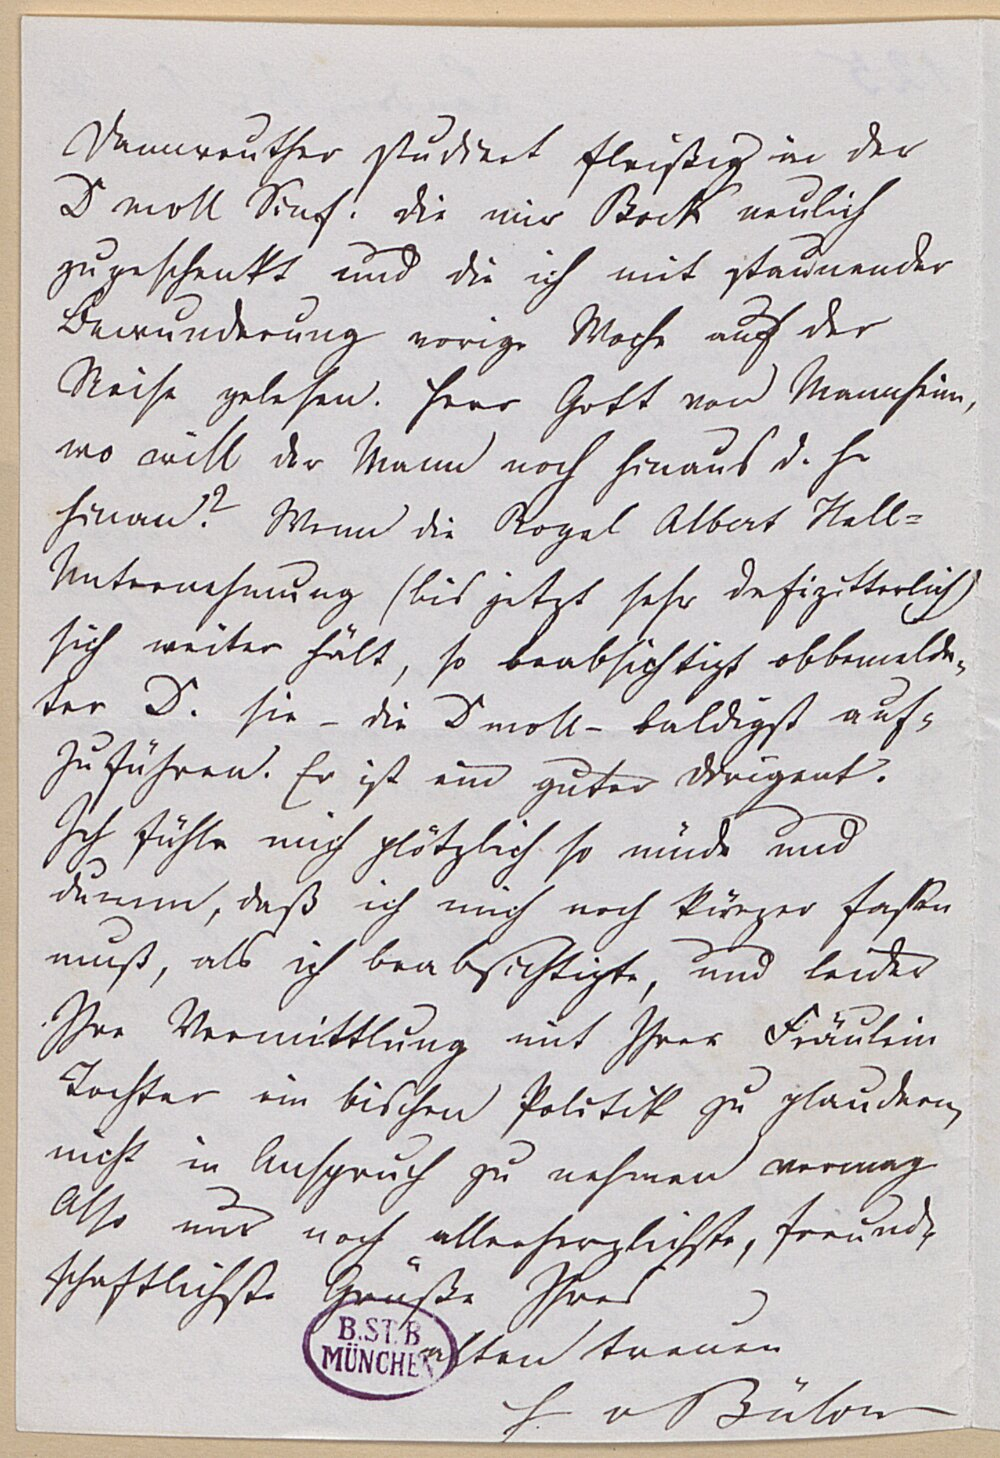 Dannreuther studiert fleißig in der
D moll Sinf. die mir Bock neulich
zugeschenkt und die ich mit staunender
Bewunderung vorige Woche auf der
Reise gelesen. Herr Gott von Mannheim,
wo will der Mann noch hinaus d. h.
hinan? Wenn die Royal Albert Hall=
Unternehmung (bis jetzt sehr defizitterlich)
sich weiter hält, so beabsichtigt obbemelde-
ter D. sie – die D moll – baldigst auf-
zuführen. Er ist ein guter Dirigent.
Ich fühle mich plötzlich so müde und
dumm, daß ich mich noch kürzer fassen
muß, als ich beabsichtigte, und leider
Ihre Vermittlung mit Ihrer Fräulein
Tochter ein bischen Politik zu plaudern,
nicht in Anspruch zu nehmen vermag
Also nur noch allerherzlichste, freund-
schaftlichste Grüße Ihres
alten treuen
H v Bülow
B.ST.B
MÜNCHEN